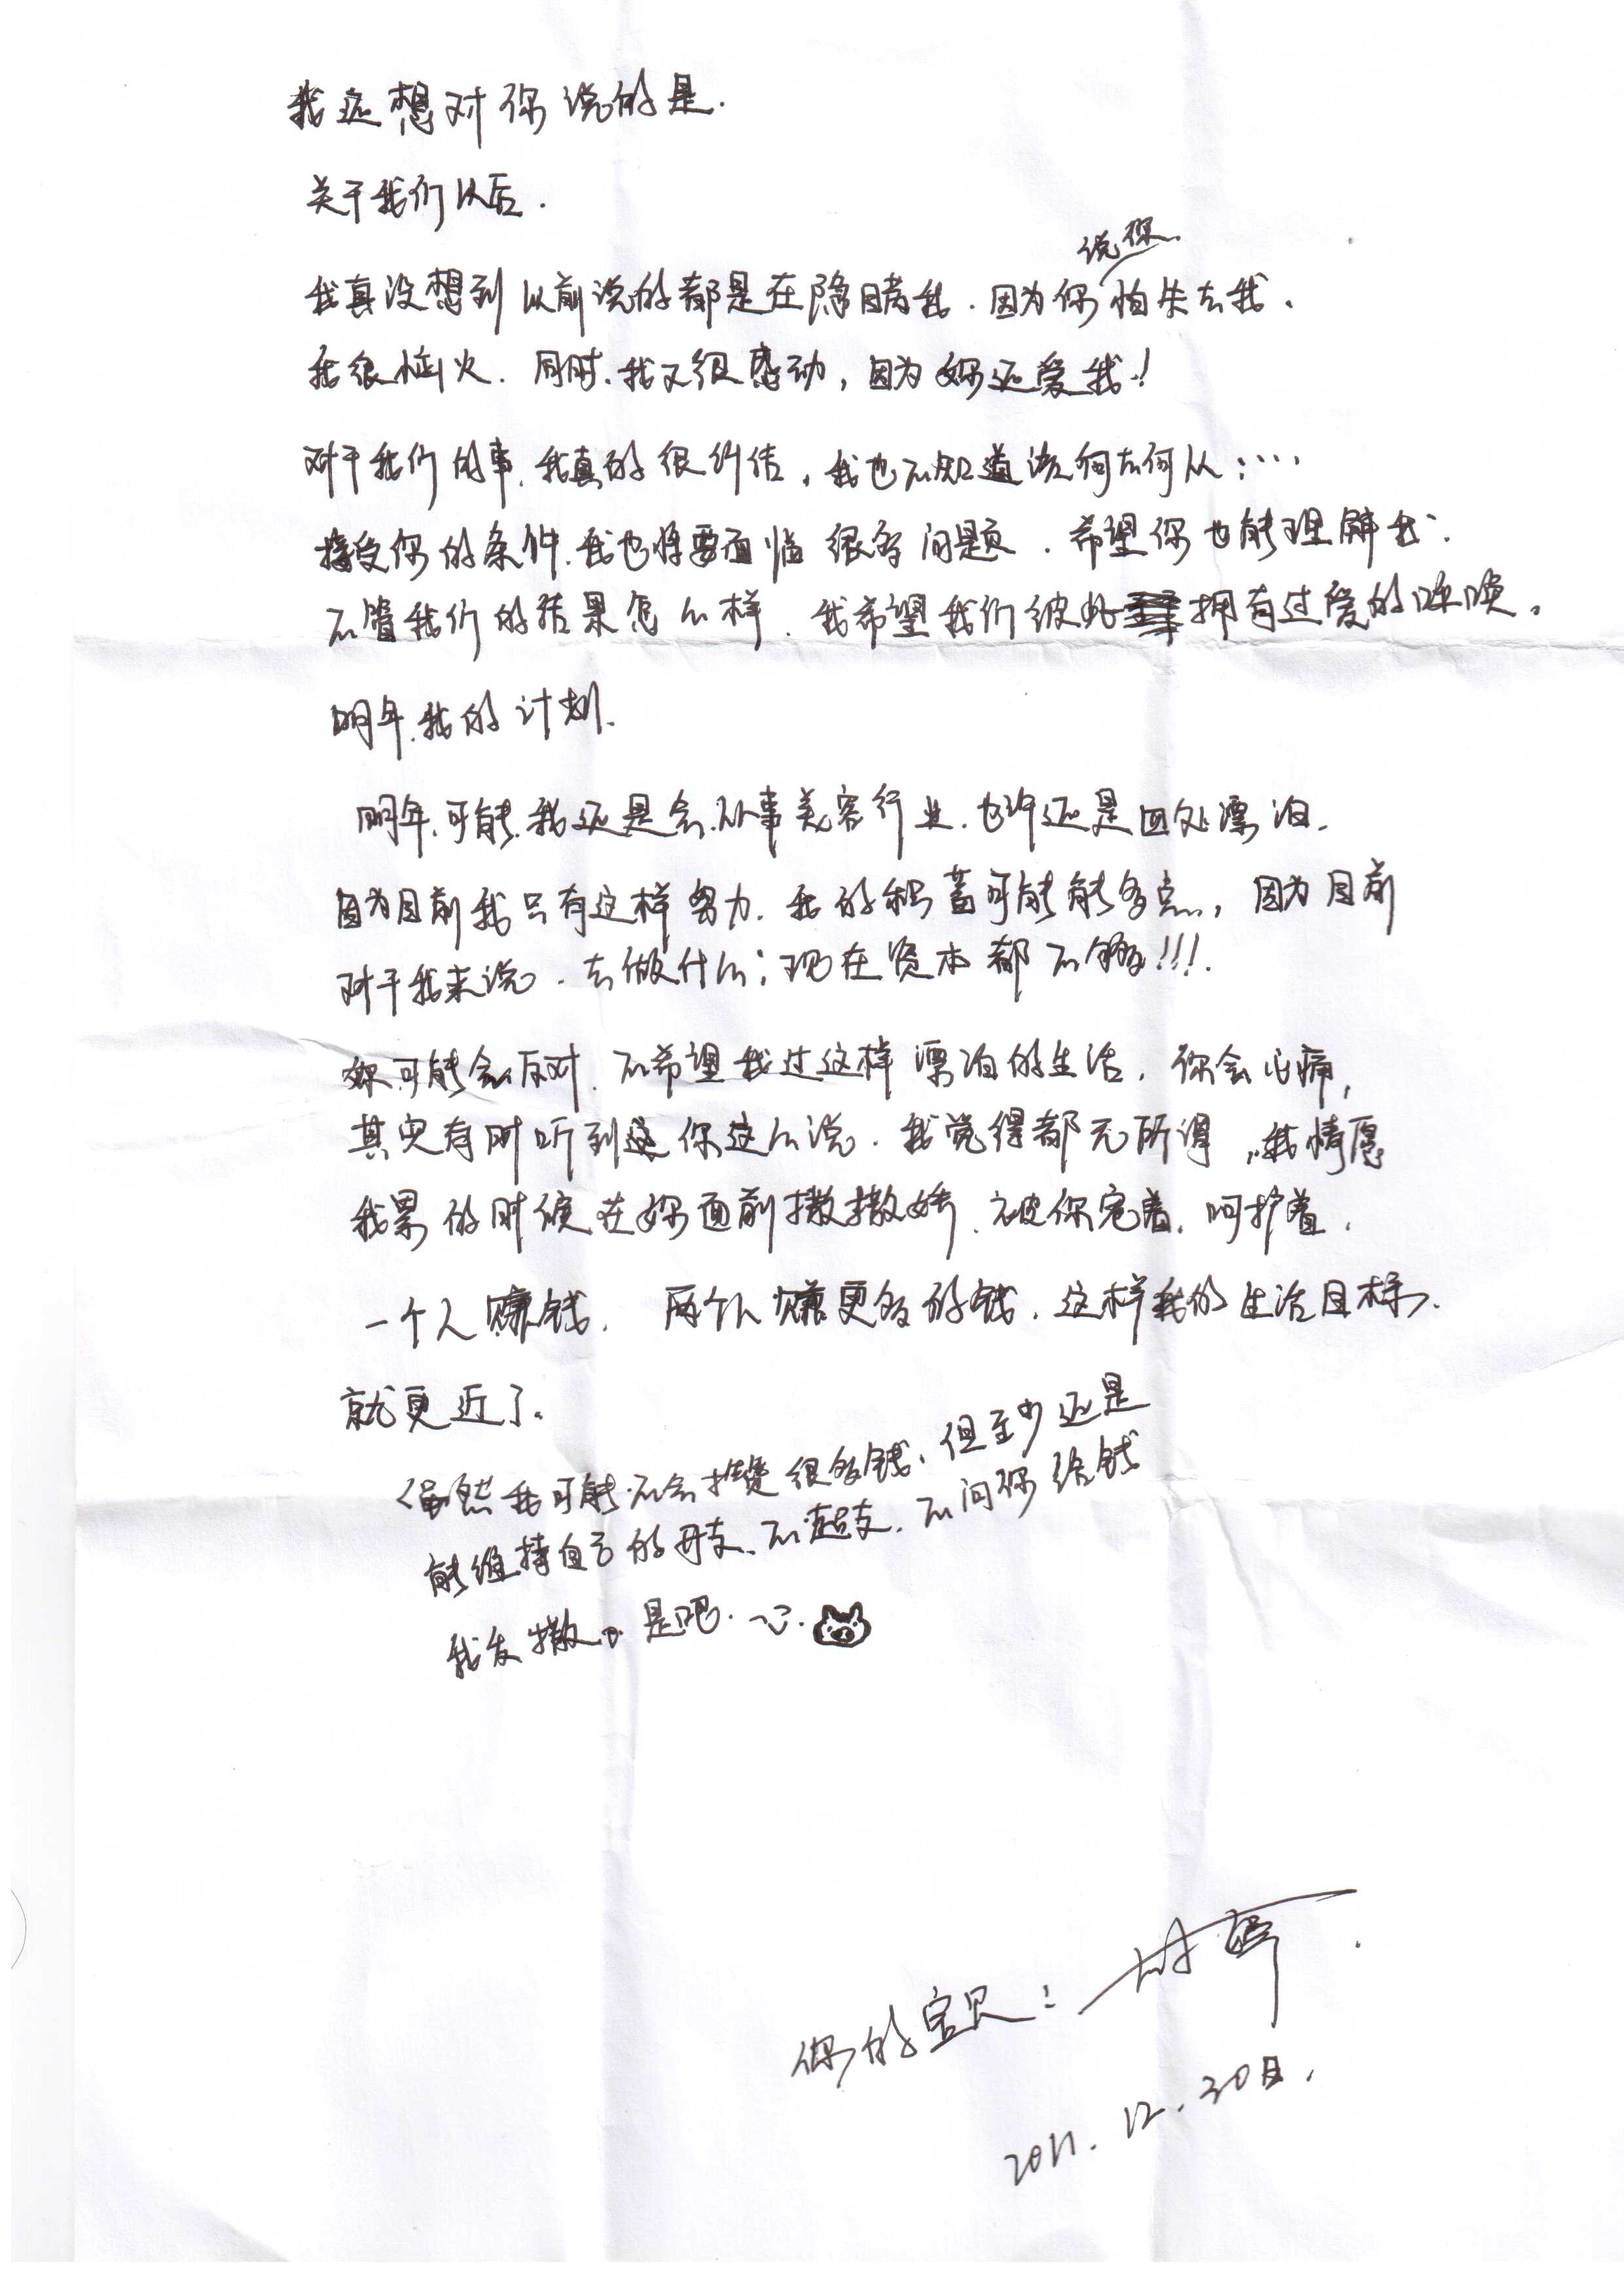 我还想对你说的是.
关于我们以后.
我真没想到以前说的都是在隐瞒我.因为你说你怕失去我.
我很恼火.同时.我又很感动,因为你还爱我!
对于我们的事.我真的很纠结.我也不知道该何去何从:...
接受你的条件.我也将要面临很多问题.希望你也能理解我.
不管我们的结果怎么样.我希望我们彼此拥有过爱的呼唤.
明年.我的计划.
明年.可能.我还是会.从事美容行业.也许还是四处漂泊.
因为目前我只有这样努力.我的积蓄可能能多点.,因为目前
对于我来说.去做什么;现在资本都不够!!!.
你可能会反对.不希望我过这样漂泊的生活.你会心痛,
其实有时听到你这么说.我觉得都无所谓,我情愿
我累的时候在你面前撒撒娇.被你宠着.呵护着.
一个人赚钱.两个人赚更多的钱.这样我的生活目标.
就更近了.
<虽然我可能.不会攒很多钱.但至少还是
能维持自己的开支.不超支.不问你给钱
我友撒.是吧.
你的宝贝:婷.
2011.12.30日.